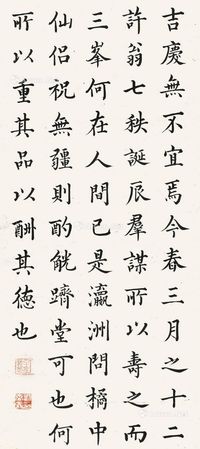 吉慶無不宜焉今春三月之十二
許翁七秩誕辰羣謀所以壽之而
三峯何在人間已是瀛洲問橘中
仙侶祝無疆則酌觥躋堂可也何
所以重其品以酬其德也